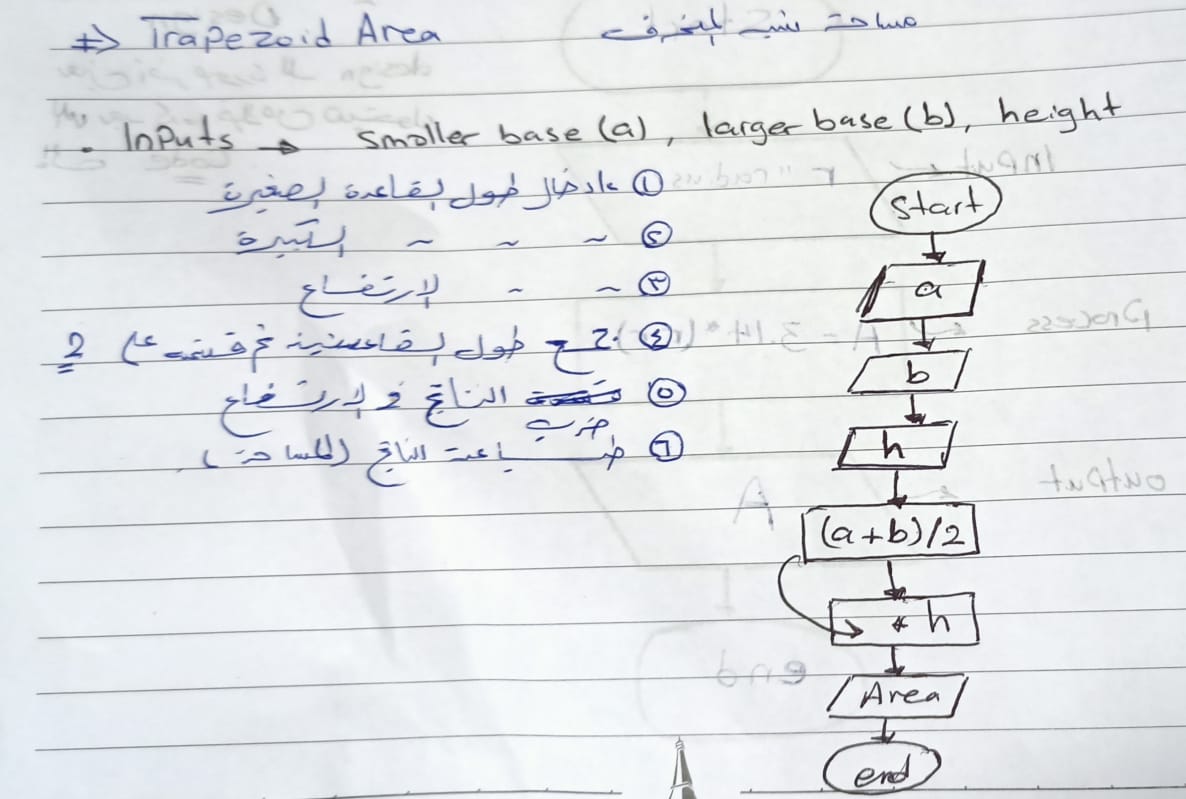 => Trapezoid Area مساحة شبه المنحرف
. Inputs → smaller base (a), larger base (b), height
① ادخال طول القاعدة الصغيرة
② ~ ~ ~ الكبيرة
③ ~ ~ الارتفاع
④ جمع طول القاعدتين ثم قسمته على 2
⑤ ضرب الناتج في الارتفاع
⑥ طباعة الناتج (المساحة)
Start
a
b
h
(a+b)/2
* h
Area
end